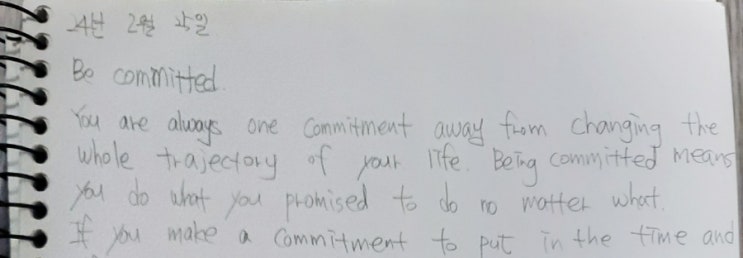 24년 2월 25일
Be committed.
You are always one commitment away from changing the
whole trajectory of your life. Being committed means
you do what you promised to do no matter what.
If you make a commitment to put in the time and